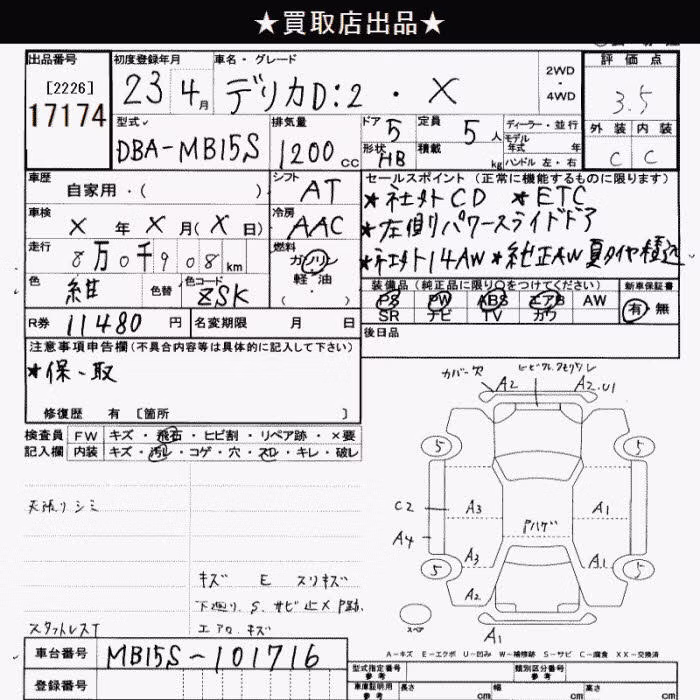 ★買取店出品★
出品番号 初度登録年月 車名・グレード 評価点
[2226] 23 4月 デリカD:2・X 2WD・4WD 3.5
17174
型式 排気量 ドア 5 定員 5人 ディーラー・並行 外装 内装
DBA-MB15S 1200cc 形状 HB 積載 kg モデル年式 年式 C C
ハンドル 左・右
車歴 自家用・( ) シフト AT セールスポイント (正常に機能するものに限ります)
★社外CD ★ETC
車検 X年X月(X日) 冷房 AAC ★左側パワースライドドア
走行 8万0千908km 燃料 ガソリン 軽油 ( ) ★社外14AW ★純正AW夏タイヤ積込
色 紺 色替 色コード ZSK 装備品 (純正品に限り○をつけてください) 新車保証書
PS PW ABS エアB AW 有・無
SR ナビ TV カワ
R券 11480円 名変期限 月 日 後日品
注意事項申告欄 (不具合内容等は具体的に記入して下さい)
★保、取
修復歴 有 [箇所 ]
検査員 FW キズ・飛石・ヒビ割・リペア跡・×要
記入欄 内装 キズ・汚レ・コゲ・穴・スレ・キレ・破レ
カバー欠 A2 A2.U1
5 5
C2 A3 A1
A4 Pハゲ
A3 A1
5 5
A2
スペア A1
天張りシミ
キズ E スリキズ
下廻り、S、サビ止×P跡、
スタットレスT エアロ、キズ
A-キズ E-エクボ U-凹み W-補修跡 S-サビ C-腐食 XX-交換済
車台番号 MB15S-101716 型式指定番号 参考 類別区分番号 参考
登録番号 車庫証明用 参考 長さ cm 幅 cm 高さ cm